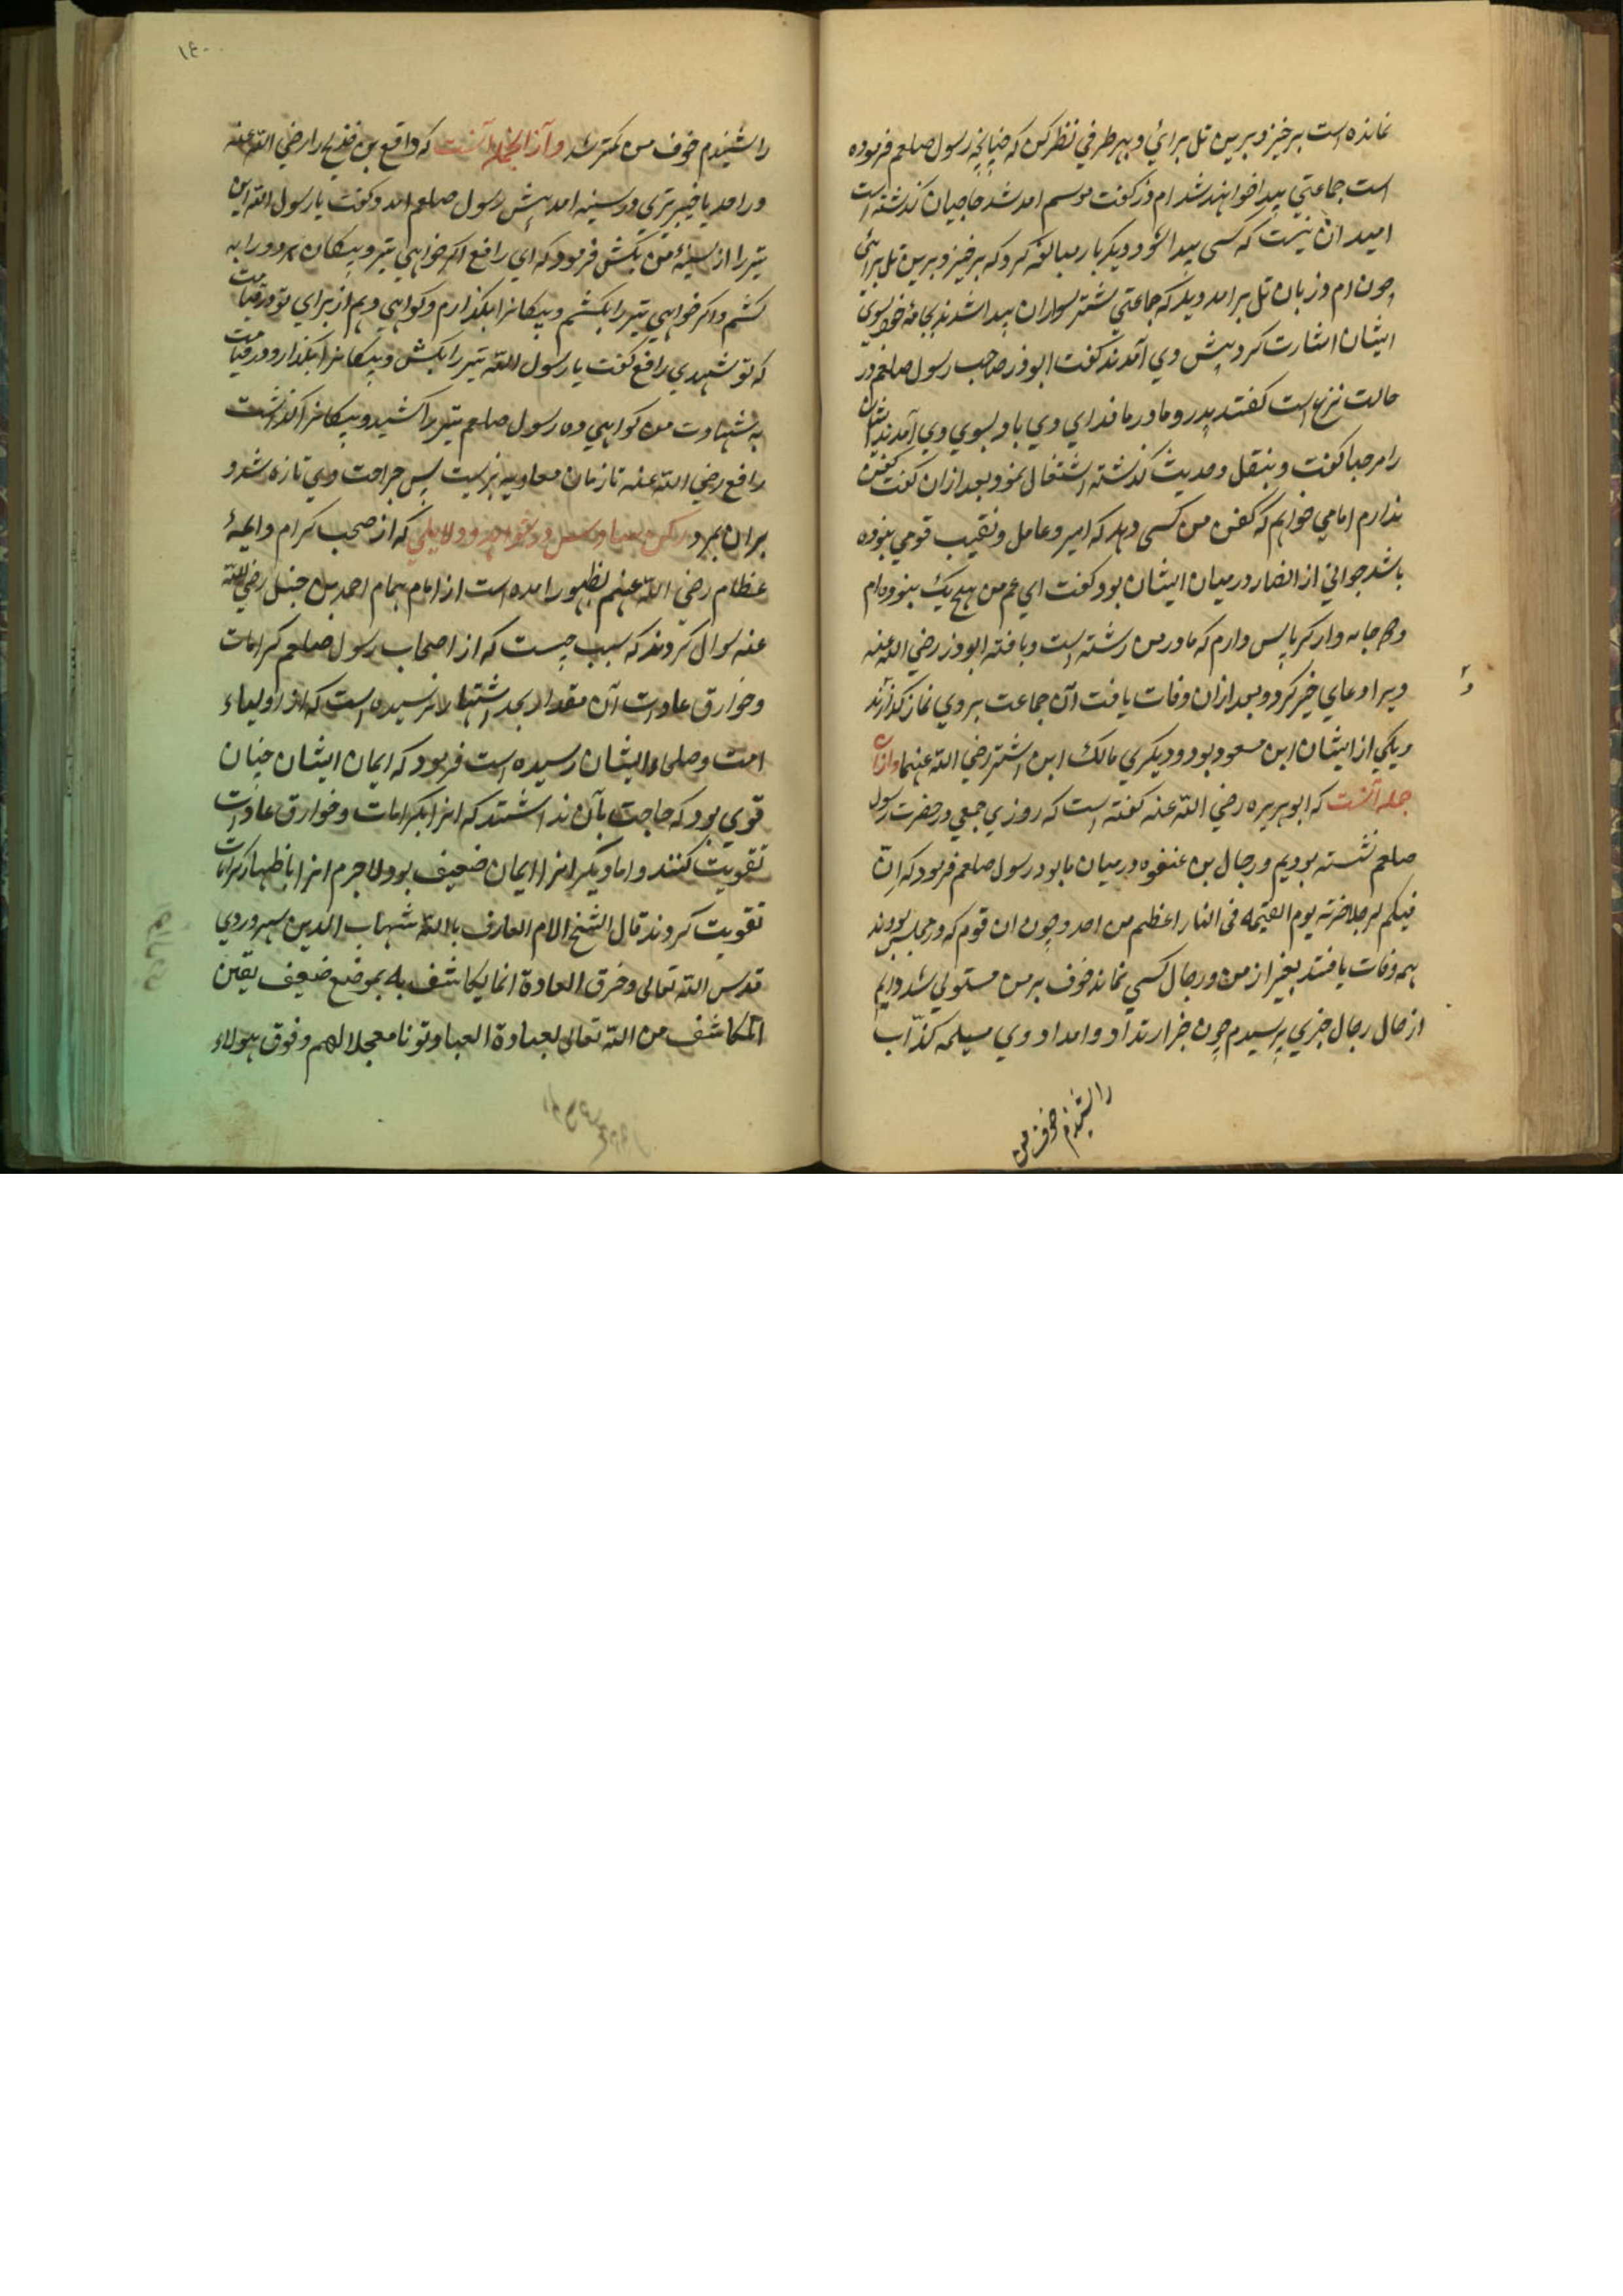 نمانده است برخیز و برین تل برائي و بهر طرفي نظر کن که چنانچه رسول صلعم فرموده
است جماعتي پیدا خواهند شد ام ذر کفت موسم امد شد حاجیان کذشته است
امید ان نیست که کسی پیدا شود دیکر بار مبالغه کرد که برخیز و برین تل برائي
چون ام ذر بان تل برامد دید که جماعتي شتر سواران پیدا شدند بجامه خود بسوي
ایشان اشارت کرد پیش وي آمدند کفت ابوذر صاحب رسول صلعم در
حالت نزع است کفتند پدر و مادر ما فداي وي باد بسوي وي آمدند ایشان
را مرحبا کفت و بنقل حدیث کذشته اشتغال نمود بعد ازان کفت کفن
ندارم امامي خواهم که کفن من کسی دهد که امیر و عامل و نقیب قومي نبوده
باشد جواني از انصار درمیان ایشان بود کفت اي عم من هیچ یک نبوده ام
و جامه وار کرباس دارم که مادر من رشته است و بافته ابوذر رضي الله عنه
ویرا دعاي خیر کرد و بعد ازان وفات یافت آن جماعت بروي نماز کذاردند
و یکي از ایشان ابن مسعود بود و دیکري مالک ابن اشتر رضي الله عنهما و ازان
جمله آنست که ابوهریره رضي الله عنه کفته است که روزي جمعي در حضرت رسول
صلعم نشسته بودیم و رجال بن عنفوه درمیان ما بود رسول صلعم فرمود که انّ
فیکم لرجلا ضرسه یوم القیمه في النار اعظم من احد و چون ان قوم که در مجلس بودند
همه وفات یافتند بغیر از من و رجال کسي نماند خوف بر من مستولي شد دایم
از حال رجال خبري پرسیدم چون خبر ارتداد و امداد وي مسیلمه کذّاب
را شنیدم خوف من
۱۴۰
را شنیدم خوف من کمتر شد و آز انجمله آنست که رافع بن خدیج را رضي الله عنه
در احد یا خیبر تیري در سینه امد پیش رسول صلعم امد و کفت یا رسول الله این
تیر را از سینهٔ من بکش فرمود که اي رافع اکر خواهي تیر و پیکان هر دو را به
کشم و اکر خواهي تیر را بکشم و پیکانرا بکذارم و کواهي دهم از براي تو در قیامت
که تو شهیدي رافع کفت یا رسول الله تیر را بکش و پیکانرا بکذار و در قیامت
به شهادت من کواهي ده رسول صلعم تیر را کشید و پیکانرا کذاشت
رافع رضي الله عنه تا زمان معاویه بزیست پس جراحت وي تازه شد و
بران بمرد رکن سادس در شواهد و دلایلي که از صحب کرام و ایمهٔ
عظام رضي الله عنهم بظهور امده است از امام همام احمد بن حنبل رضي الله
عنه سوال کردند که سبب چیست که از اصحاب رسول صلعم کرامات
و خوارق عادات آن مقدار بحد اشتهار نرسیده است که از اولیاء
امت و صلحاء ایشان رسیده است فرمود که ایمان ایشان چنان
قوي بود که حاجت بآن نداشتند که انرا بکرامات و خوارق عادات
تقویت کنند و اما دیکرانرا ایمان ضعیف بود لاجرم انرا باظهار کرامات
تقویت کردند قال الشیخ الامام العارف بالله شهاب الدین سهروردي
قدس الله تعالی و خرق العادة انما یکاشف به بموضع ضعیف یقین
المکاشف من الله تعالی لعباده العباد ثوابا معجلا لهم و فوق هولاء